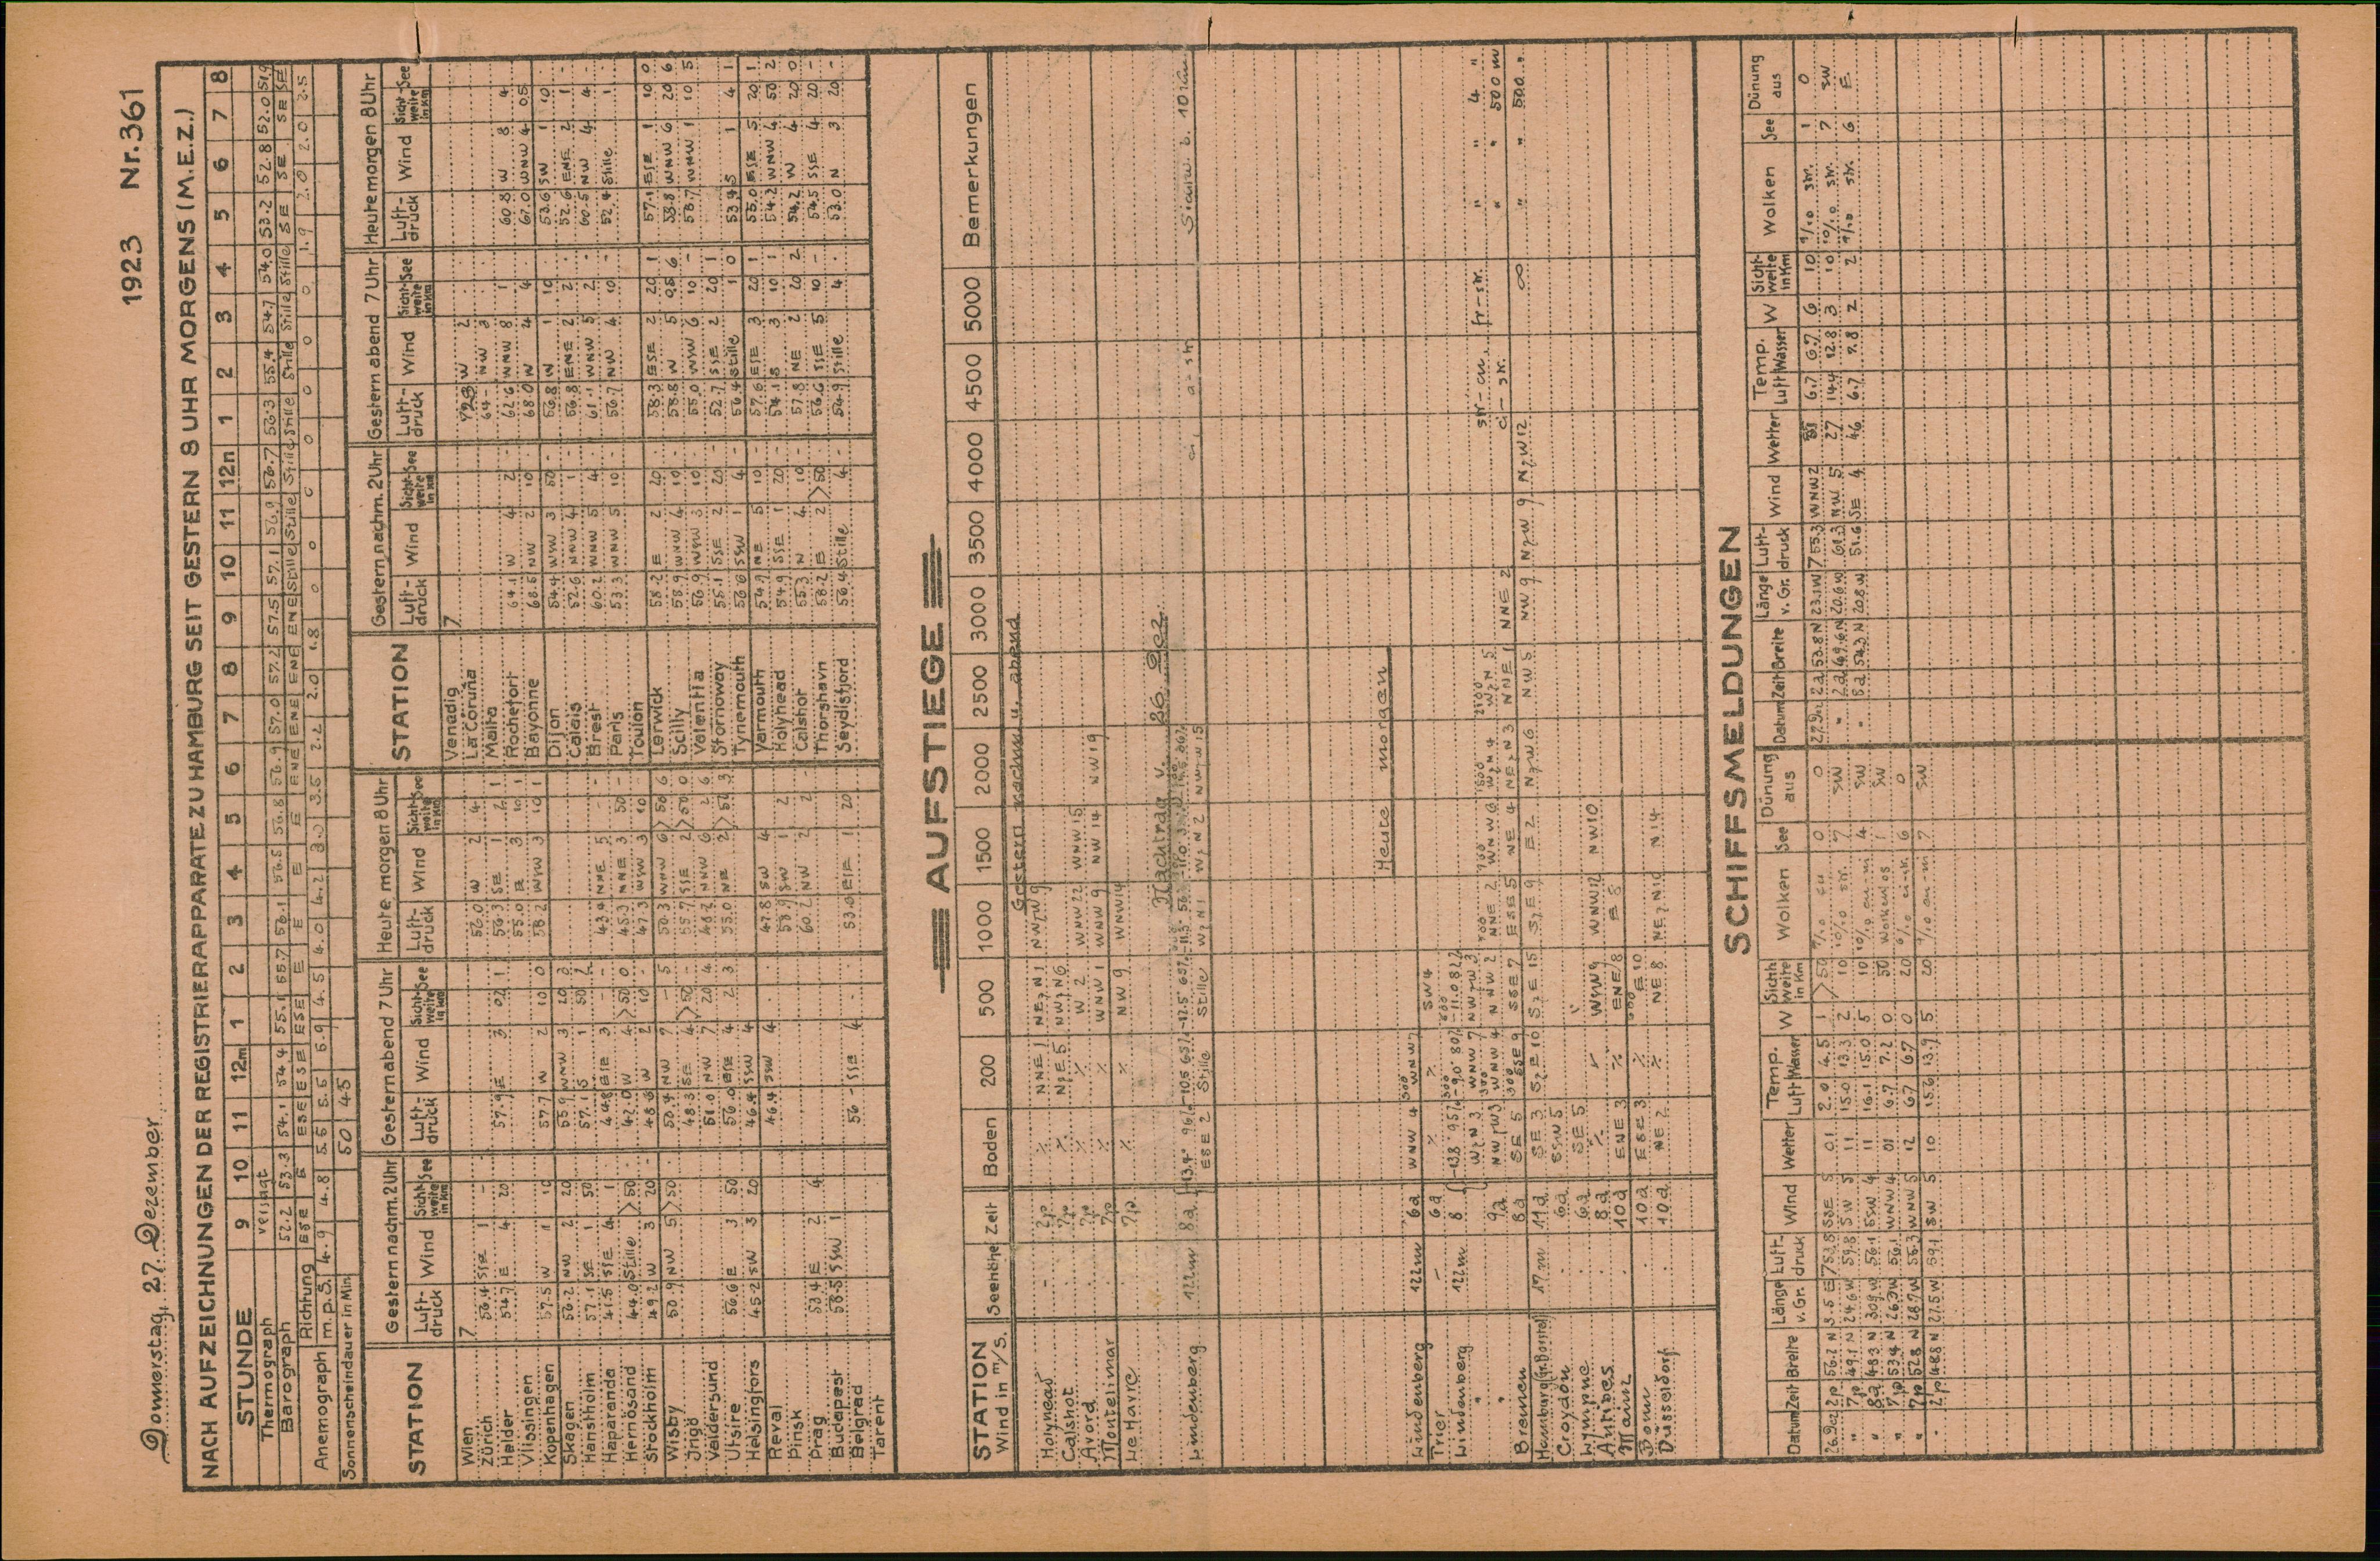 1923 Nr. 361
Donnerstag, 27. Dezember
NACH AUFZEICHNUNGEN DER REGISTRIERAPPARATE ZU HAMBURG SEIT GESTERN 8 UHR MORGENS (M.E.Z.)
STUNDE 9 10 11 12m 1 2 3 4 5 6 7 8 9 10 11 12n 1 2 3 4 5 6 7 8
Thermograph versagt
Barograph 52.2 53.3 54.1 54.4 55.1 55.7 56.1 56.5 56.8 56.9 57.0 57.2 57.5 57.1 56.9 56.7 56.3 55.4 54.7 54.0 53.2 52.8 52.0 51.9
Anemograph Richtung ESE E ESE ESE ESE E E E E ENE ENE ENE ENE Stille Stille Stille Stille Stille Stille Stille SE SE SE SE
m.p.S. 4.9 4.8 5.5 5.5 5.9 4.5 4.0 4.2 3.0 3.5 2.2 2.0 1.8 0 0 0 0 0 0 0 1.9 2.0 2.0 2.5
Sonnenscheindauer in Min. 50 45
STATION Gestern nachm. 2 Uhr Gestern abend 7 Uhr Heute morgen 8 Uhr
Luftdruck Wind Sichtweite in Km See Luftdruck Wind Sichtweite in Km See Luftdruck Wind Sichtweite in Km See
Wien 7
Zürich 56.4 SSE 1 - 56.0 W 2 4
Helder 54.7 E 4 20 57.9 E 3 02 1 56.3 SE 1 2 1
Vlissingen 55.0 E 3 10 1
Kopenhagen 57.5 W 1 10 57.7 W 2 10 0 58.2 WNW 3 10 1
Skagen 56.2 NW 2 20 55.9 WNW 3 20 3
Hanstholm 57.1 SE 1 50 57.1 S 1 50 2
Haparanda 41.5 SSE 4 1 44.8 ESE 3 - - 43.9 NNE 5 - -
Hernösand 44.0 Stille >50 47.0 W 4 >50 0 45.3 NNE 3 50 -
Stockholm 49.2 W 3 20 - 48.6 W 2 10 - 47.3 WNW 3 10
Wisby 50.9 NW 5 >50 50.4 NW 7 - 5 50.3 WNW 6 >50 6
Ingö 48.3 SE 4 >50 55.7 SSE 2 >50 0
Valdersund 51.0 NW 7 20 4 48.2 NNW 6 2 6
Utsire 56.6 E 3 50 56.0 ESE 4 2 3 55.0 NE 2 >50 3
Helsingfors 45.2 SW 3 20 46.4 SSW 4
Reval 46.4 SSW 4 47.8 SW 4
Pinsk 58.9 SW 1 2
Prag 53.4 E 2 4 60.2 NW 2 2
Budapest 58.5 SSW 1 56 - SSE 4 53.0 ESE 1 20
Belgrad
Tarent
STATION Gestern nachm. 2 Uhr Gestern abend 7 Uhr Heute morgen 8 Uhr
Luftdruck Wind Sichtweite in Km See Luftdruck Wind Sichtweite in Km See Luftdruck Wind Sichtweite in Km See
Venedig 7
La Coruña W 2
Malta 64 - NW 3
Rochefort 64.1 W 4 2 - 62.6 WNW 8 1 60.8 W 8 4
Bayonne 68.5 NW 2 10 68.0 W 4 4 67.0 WNW 4 0,5
Dijon 54.4 WSW 3 50 56.8 W 1 10 53.6 SW 1 10
Calais 52.6 NNW 4 1 - 56.8 ENE 2 2 52.6 ENE 2 1 -
Brest 60.2 WNW 5 4 61.1 WNW 5 2 - 60.5 NW 4 4 -
Paris 53.3 WNW 5 10 - 56.7 NW 4 10 - 52.4 Stille 1
Toulon
Lerwick 58.2 E 2 20 58.3 ESE 2 20 1 57.1 ESE 1 10 0
Scilly 58.9 WNW 4 10 58.8 W 5 0,5 6 58.8 WNW 6 20 6
Valentia 56.9 WNW 3 10 55.0 WSW 6 10 - 58.7 WNW 1 10 5
Stornoway 55.1 SSE 2 20 52.7 SSE 2 20 1
Tynemouth 56.6 SSW 1 4 56.4 Stille 1 0 53.4 S 1 4 1
Yarmouth 54.9 NE 5 10 - 57.6 ESE 3 20 1 55.0 ESE 5 20 1
Holyhead 54.9 SSE 1 20 54.1 S 3 10 1 54.2 WNW 4 50 2
Calshot 55.3 N 4 10 57.8 NE 2 20 2 54.2 W 4 20 0
Thorshavn 58.2 E 2 >50 56.6 SSE 5 10 - 54.5 SSE 4 20 -
Seydisfjord 56.4 Stille 4 - 54.9 Stille 4 53.0 N 3 20 -
AUFSTIEGE
STATION Wind in m/s. Seehöhe Zeit Boden 200 500 1000 1500 2000 2500 3000 3500 4000 4500 5000 Bemerkungen
Gestern nachm. u. abend
Holyhead - 2p % NNE 1 NEzN 1 NWzW 9
Calshot 7p % NSE 5 NWzN 6
Avord 7p % % W 2 WNW 22 WNW 15
Montelimar 7p % % WNW 1 WNW 9 NW 14 NW 19
Le Havre 7p % % NW 9 WNW 14
Nachtrag v. 26. Dez.
Lindenberg 122m 8a ESE 2 Stille Stille WzN 1 WzN 2 NWzW 15 ci, a-str
Heute morgen
Lindenberg 122m 6a WNW 4 WNW 7 SW 4
Trier - 6a % %
Lindenberg 122m 8 WzN 3 WNW 7 NWzW 3
" 9a WNW 4 NNW 2 NNE 2 WNW 6 WzN 4 WzN 5 str-cu, fr-str. " " 4 "
Bremen 8a SE 5 ESE 9 SSE 7 ESE 5 NE 4 NEzN 3 NNE 1 NNE 2 ci-str. " " 500 m
Hamburg (Gr. Borstel) 17m 11a SE 3 SzE 10 SzE 15 SzE 9 E 2 NzW 6 NW 5 NW 9 NzW 9 NzW 12 ∞ " " 500 "
Croydon 6a SSW 5
Lympne 6a SE 5
Antibes 8a % WNW 9 WNW 12 NW 10
Mainz 10a ENE 3 % ENE 8 E 8
Bonn 10a ESE 3 % E 10
Düsseldorf 10a NE 2 % NE 8 NEzN 10 N 14
SCHIFFSMELDUNGEN
Datum Zeit Breite Länge v. Gr. Luftdruck Wind Wetter Temp. Luft Wasser W Sichtweite in Km Wolken See Dünung aus
26. Dez 2p 56.2 N 3.5 E 753.8 SSE 5 01 2.0 4.5 1 >50 9/10 cu 0 0
" 7p 49.1 N 24.6 W 59.8 SW 5 11 15.0 13.3 2 10 10/10 str. 7 SW
" 8a 48.3 N 30.9 W 56.1 SSW 4 11 16.1 15.0 5 10 10/10 cu-ni 4 SW
" 7p 53.4 N 26.3 W 56.1 WNW 4 01 6.7 7.2 0 50 Wolkenlos 7 SW
" 7p 52.8 N 28.7 W 55.3 WNW 5 12 6.7 6.7 0 20 6/10 ci-str. 6 0
" 2p 48.8 N 27.5 W 59.1 SW 5 10 15.6 13.9 5 20 9/10 cu-ni 7 SW
Datum Zeit Breite Länge v. Gr. Luftdruck Wind Wetter Temp. Luft Wasser W Sichtweite in Km Wolken See Dünung aus
27. Dez 2a 53.8 N 23.1 W 755.3 WNW 2 6.7 6.7 6 10 9/10 str. 1 0
" 2a 49.6 N 20.6 W 61.3 NW 5 27 14.4 12.8 3 10 10/10 str. 7 SW
" 8a 54.3 N 20.8 W 51.6 SE 4 46 6.7 7.8 2 2 9/10 str. 6 E